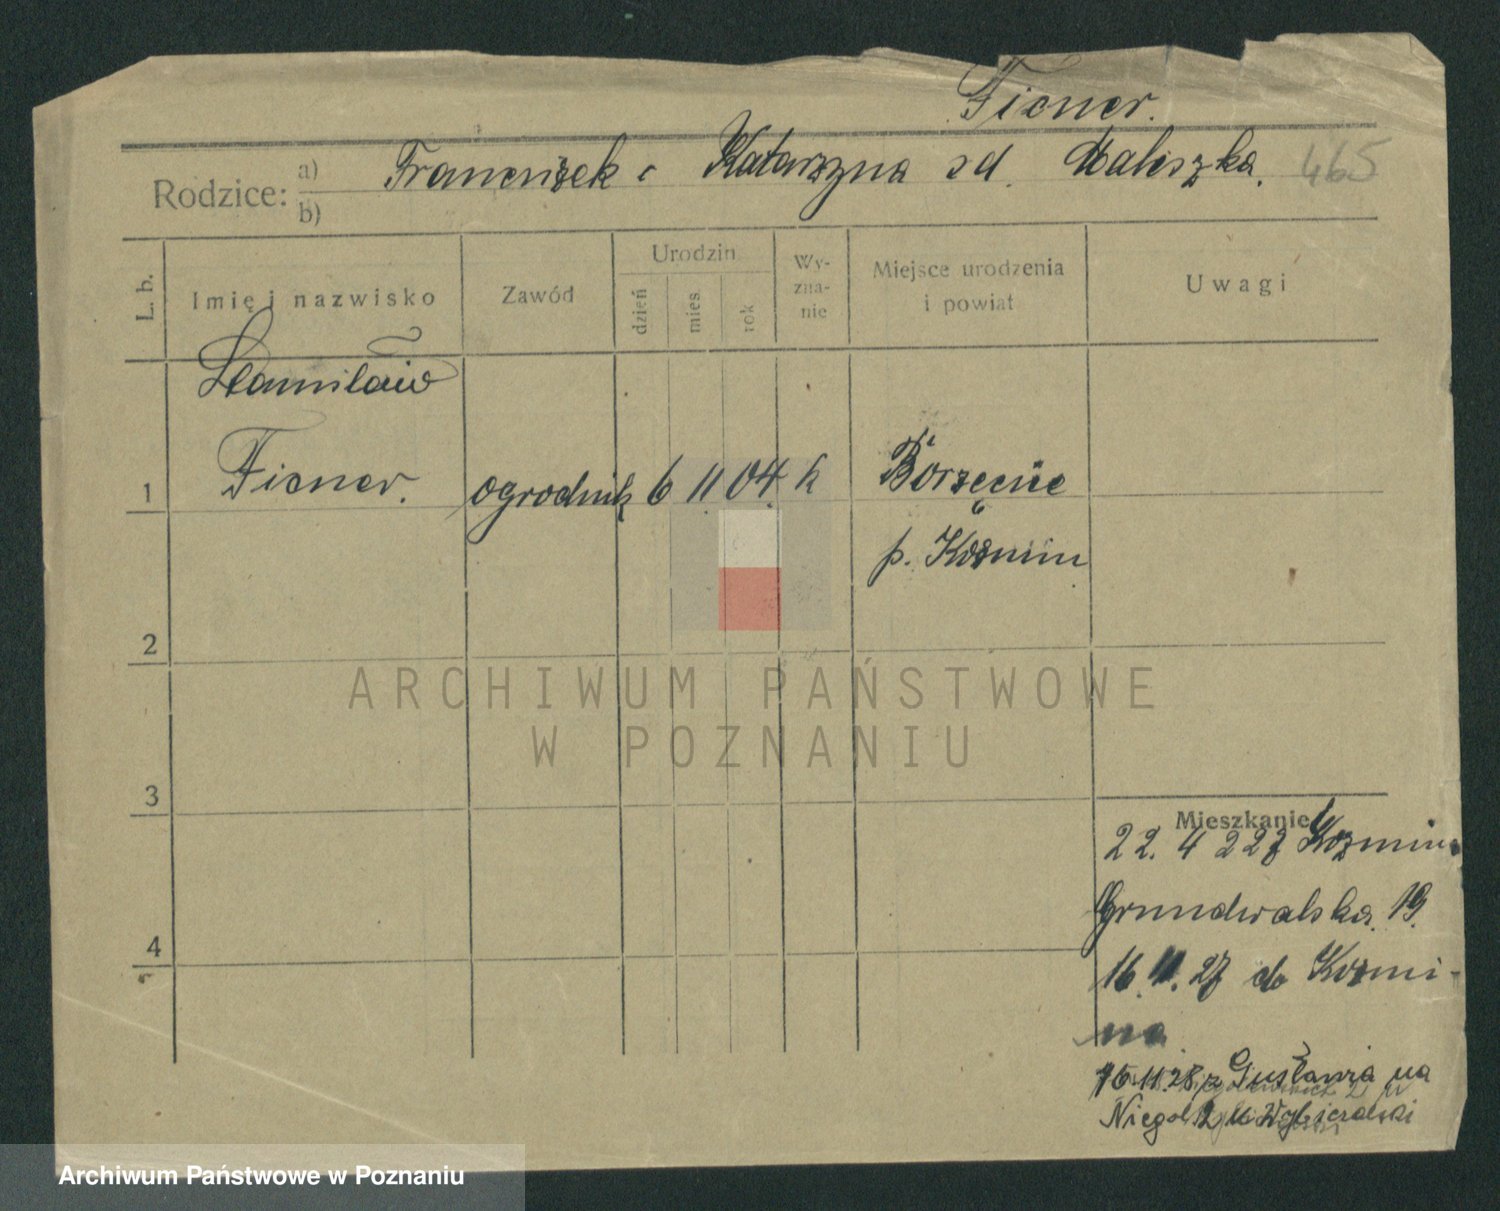 Ficner.
Rodzice: a) b) Franciszek i Katarzyna zd. Maliszka. 465
L. b. Imię i nazwisko Zawód Urodzin dzień mies. rok Wy-zna-nie Miejsce urodzenia i powiat Uwagi
Stanisław
1 Ficner. ogrodnik 6 11 04. k Borzęcice
p. Koźmin
2
ARCHIWUM PAŃSTWOWE
W POZNANIU
3
Mieszkanie
22. 4 227 z Koźmina
Grundwalska 19.
4
16. 11. 27 do Koźmi-
na
16.11.28 z Gustania na
Niegol 2 u
Archiwum Państwowe w Poznaniu